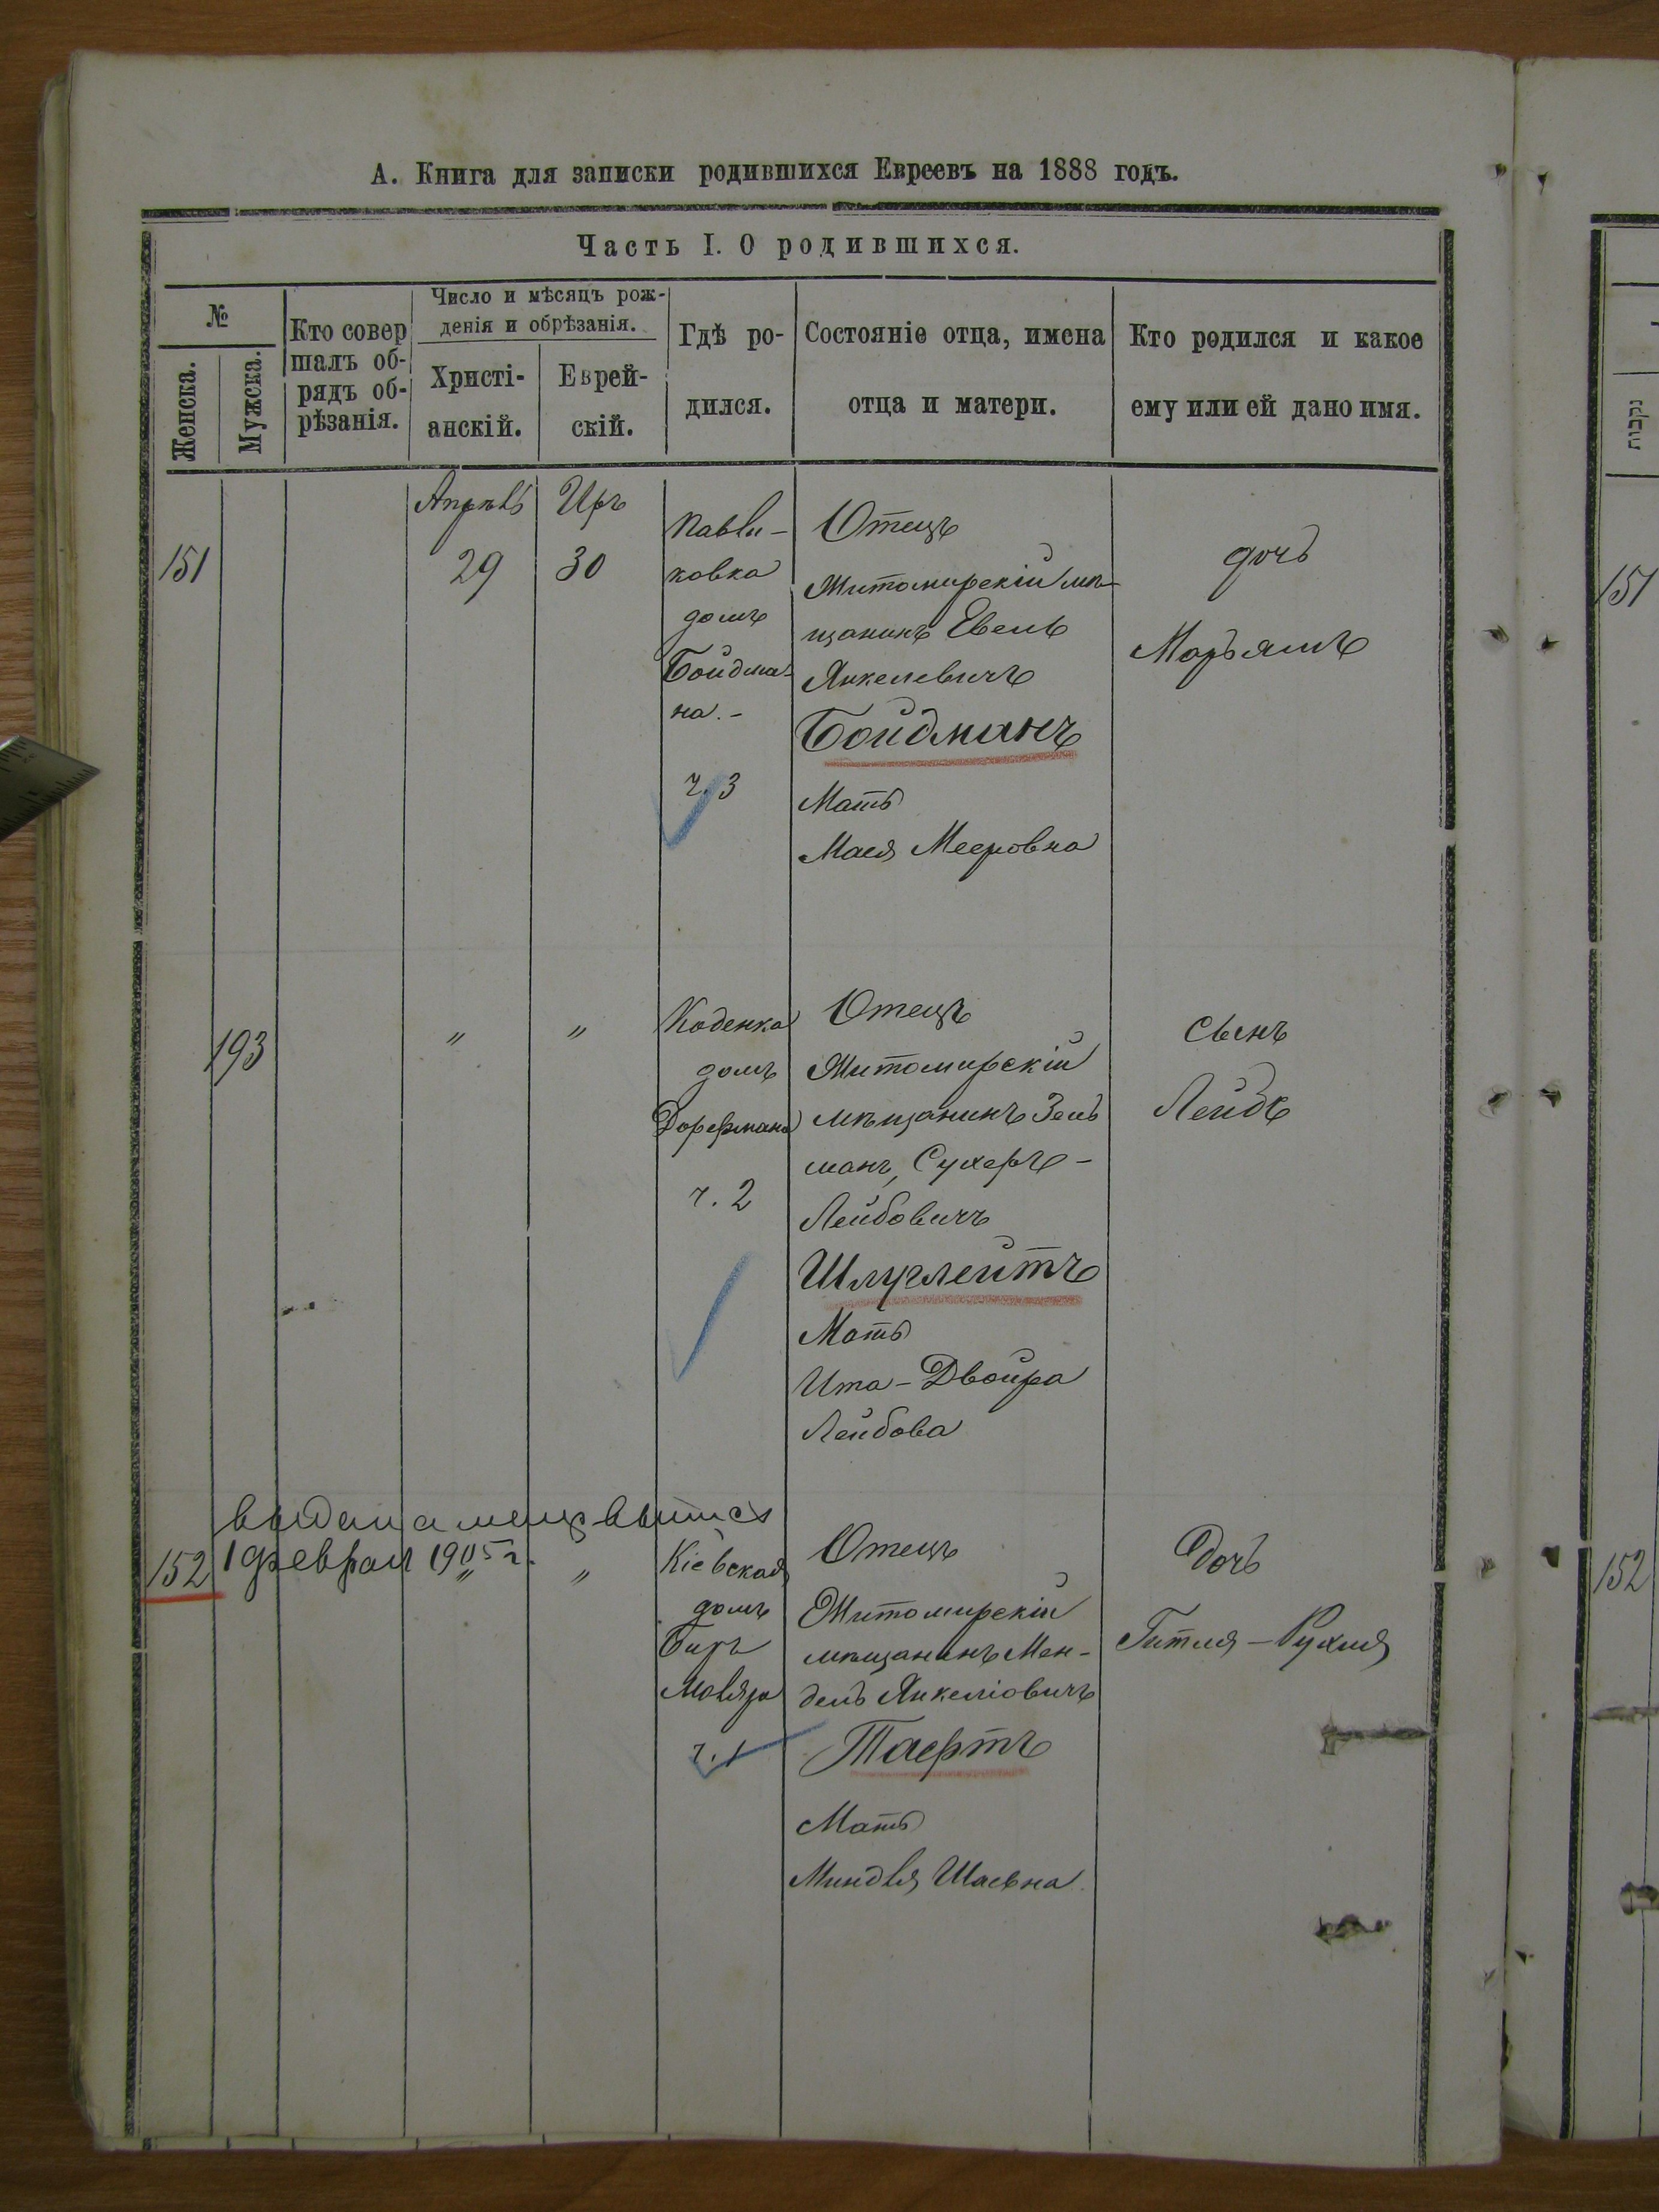 А. Книга для записки родившихся Евреевъ на 1888 годъ.
Часть I. О родившихся.
№
Женска.
Мужска.
Кто совер
шалъ об-
рядъ об-
рѣзанія.
Число и мѣсяцъ рож-
денія и обрѣзанія.
Христі-
анскій.
Еврей-
скій.
Гдѣ ро-
дился.
Состояніе отца, имена
отца и матери.
Кто родился и какое
ему или ей дано имя.
151
Апрѣль
29
Иръ
30
Павли-
ковка
домъ
Бойдма-
на.-
ч. 3
Отецъ
Житомирскій мѣ-
щанинъ Евель
Янкелевичъ
Бойдманъ
Мать
Мася Мееровна
дочь
Марьямъ
193
"
"
Коденка
домъ
Дорфмана
ч. 2
Отецъ
Житомирскій
мѣщанинъ Зель
манъ, Сухеръ-
Лейбовичъ
Шлуглейтъ
Мать
Ита-Двойра
Лейбова
сынъ
Лейбъ
выдана метр выпись
1 феврал 1905 г.
152
"
"
Кіевская
домъ
Биръ
Моляра
ч. 1
Отецъ
Житомирскій
мѣщанинъ Мен-
дель Янкеліовичъ
Таертъ
Мать
Миндля Шаевна
Дочь
Гитля-Рухля
נקבות
151
152